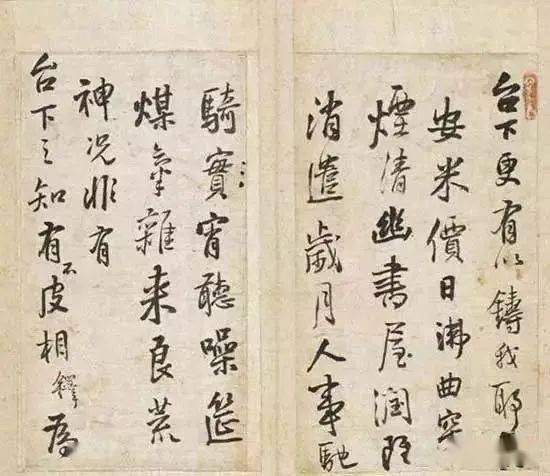 台下更有以鑄我耶
安米價日沸曲突
煙清幽書屋潤
消遣歲月人事馳
騎實宵聽噪筵
煤氣雜来良荒
神況非有
台下之知有不皮相鐸為